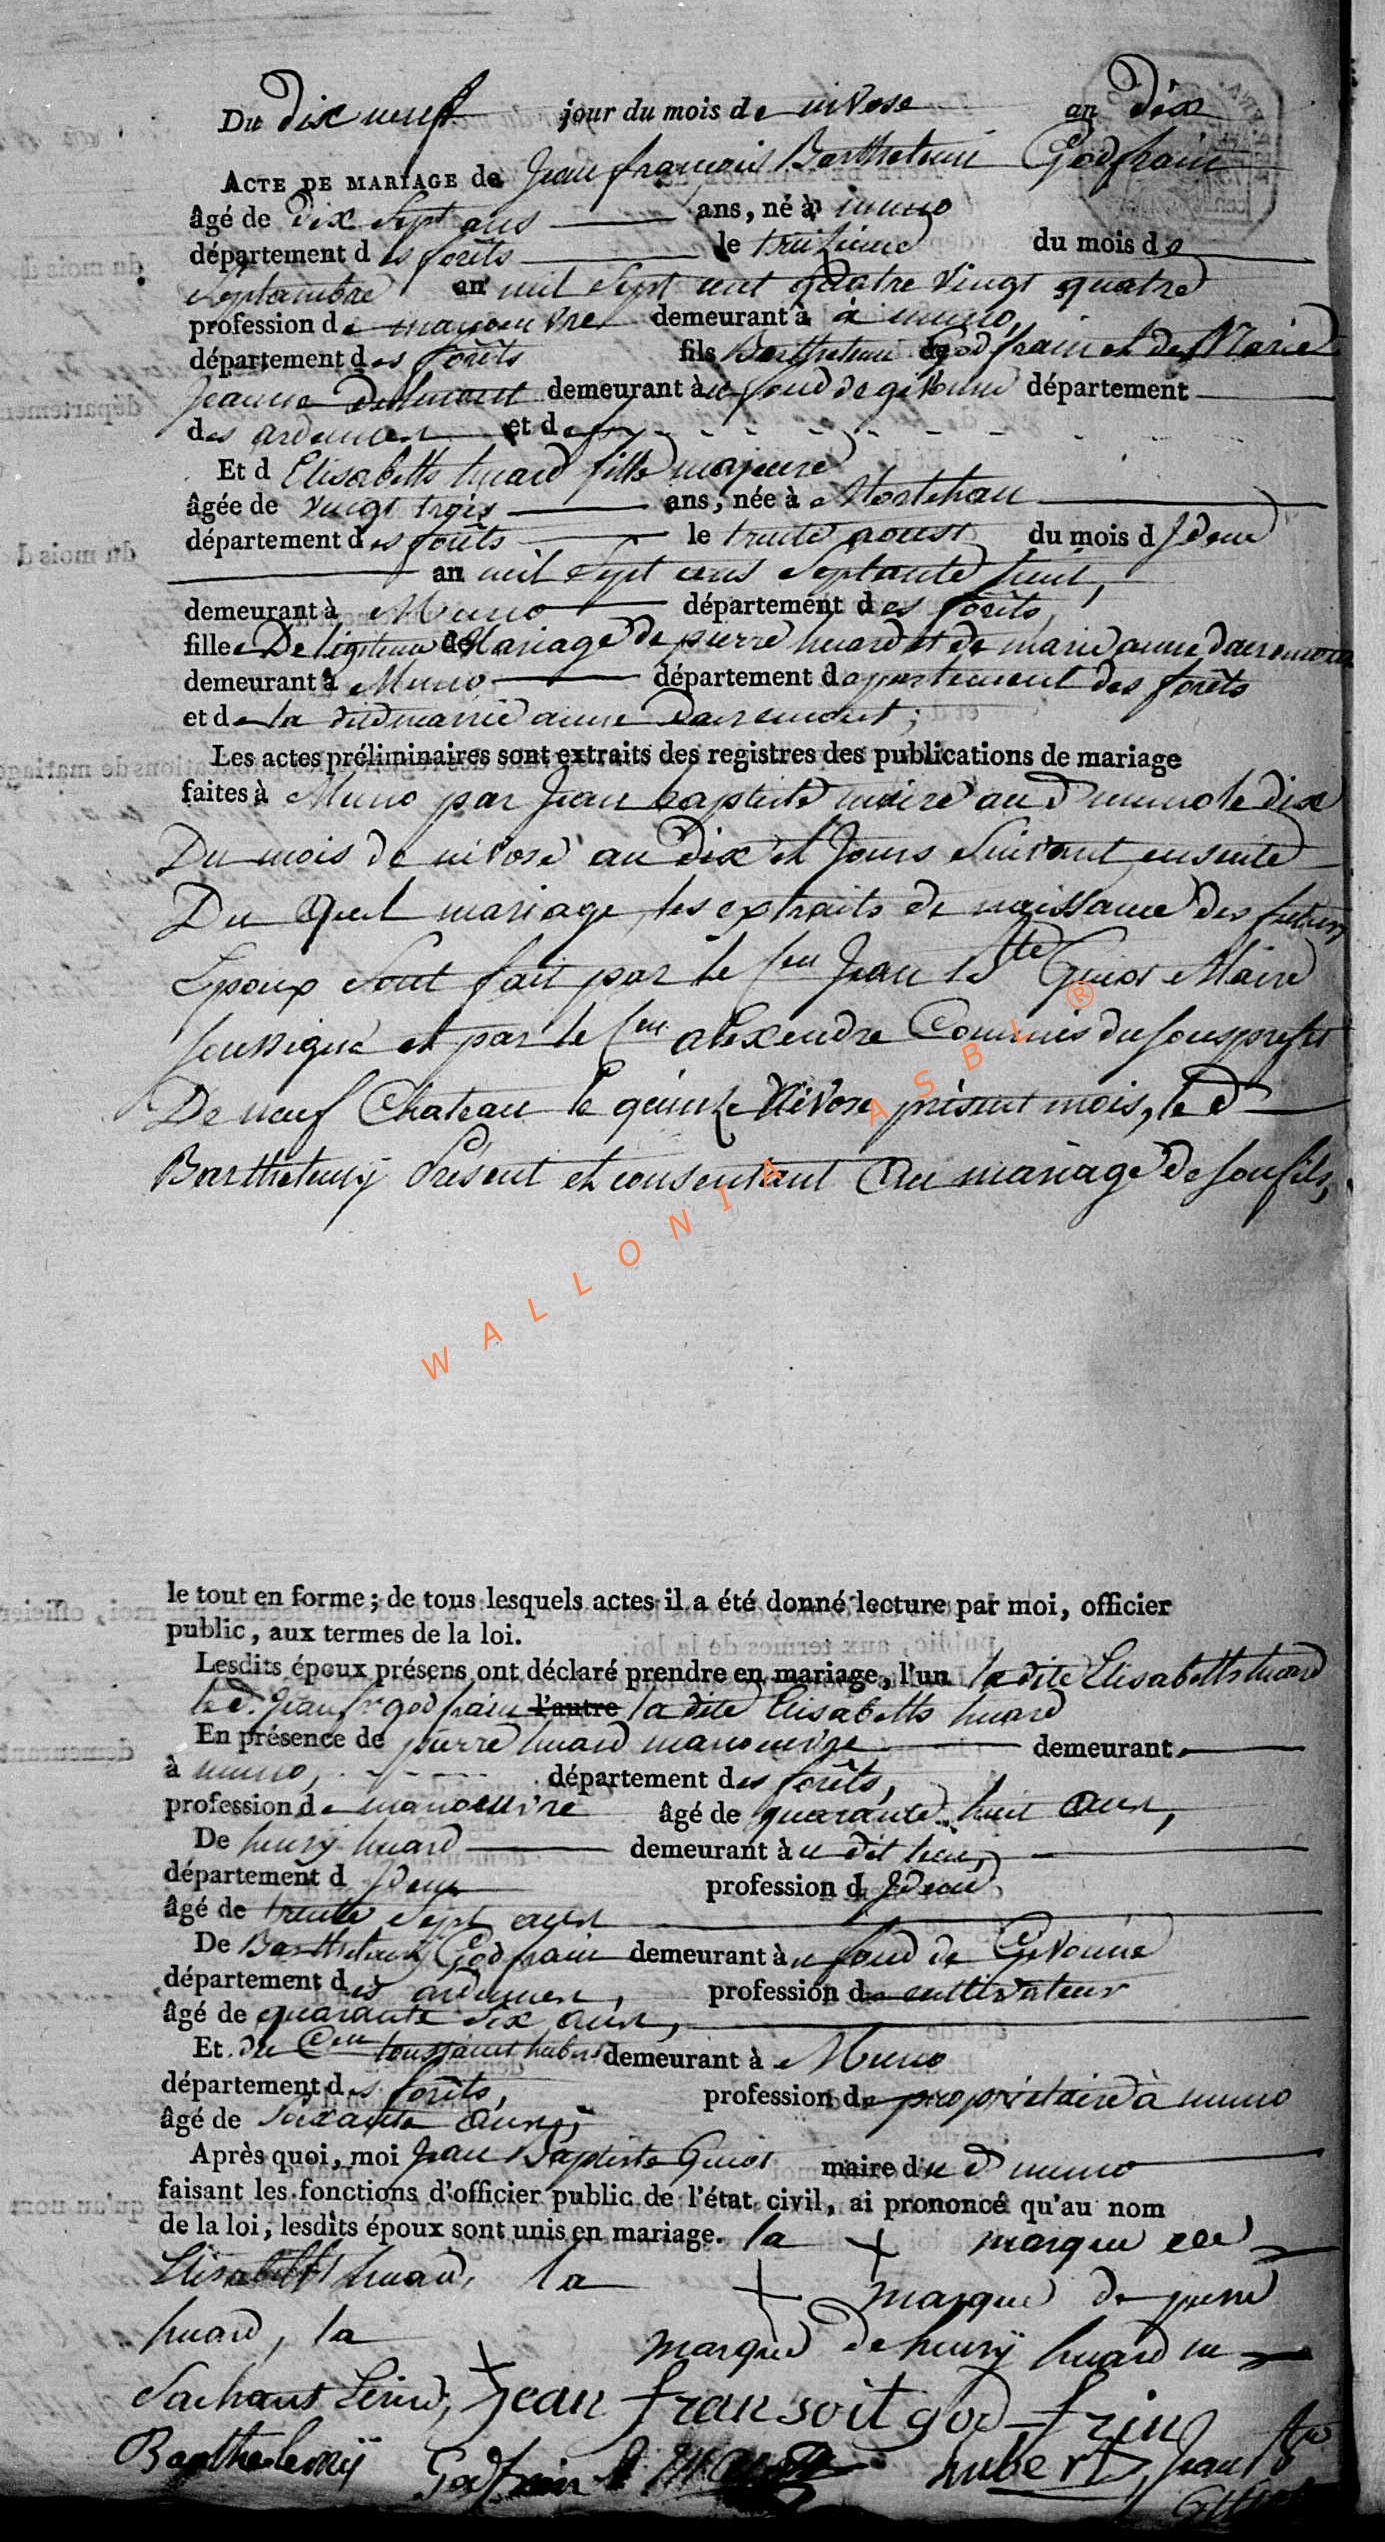 Du dix neuf jour du mois de nivose an dix
ACTE DE MARIAGE de Jean françois Barthelemi Godfrain
âgé de Dix Sept ans ans, né à muno
département des forêts le treizieme du mois de
Septambre an mil Sept cent quatre vingt quatre
profession de manoeuvre demeurant à à muno,
département des forêts fils Barthelemi de godfrain et de Marie
Jeanne demeurant à u fond de givonne département
des ardennes et de
Et d Elisabetts huard fille majeure
âgée de vingt trois ans, née à Mortehan
département des forêts le trente aoust du mois d Jdem
an mil Sept cens Septante huit,
demeurant à Muno département des forêts,
fille De legitime de Mariage de pierre huard et de marie anne
demeurant à Muno département d apartement des forêts
et de la ditte marrie anne
Les actes préliminaires sont extraits des registres des publications de mariage
faites à Muno par Jean baptiste maire au d muno le dix
Du mois de nivose an dix et Jours Suivant ensuite
Du quel mariage, les extraits de naissance des futurs
Epoux Sont fait par le Cen Jean Bte Guiot Maire
soussigné et par le Cen alexendre Commis du souspréfet
De neuf Chateau le quinze Nivose présent mois, le d
Barthelemy Présent et consentant Au mariage De son fils,
WALLONIA ASBL ®
le tout en forme; de tous lesquels actes il a été donné lecture par moi, officier
public, aux termes de la loi.
Lesdits époux présens ont déclaré prendre en mariage, l'un la dite Elisabetts huard
le d. Jean fr godfrain l'autre la dite Elisabetts huard
En présence de pierre huard manoeuvre demeurant
à muno, département des forêts,
profession de manoeuvre âgé de quarante huit ans,
De henry huard demeurant à u dit lieu,
département d Jdem profession d Jdem
âgé de trente Sept ans
De Barthelemy Godfrain demeurant à u fond de Givonne
département des ardennes, profession de cultivateur
âgé de quarante Six ans,
Et du Cen toussaint hubert demeurant à Muno
département des forêts, profession de propriétaire à muno
âgé de Soixante ans,
Après quoi, moi Jean Baptiste Guiot maire du d muno
faisant les fonctions d'officier public de l'état civil, ai prononcé qu'au nom
de la loi, lesdits époux sont unis en mariage. la + marque de
Elisabetts huard, la + marque de pierre
huard, la + marque de henry huard ne
Sachant Ecrire, Jean fransoit god frin
Barthelemÿ Godfrin hubert Jean Bte